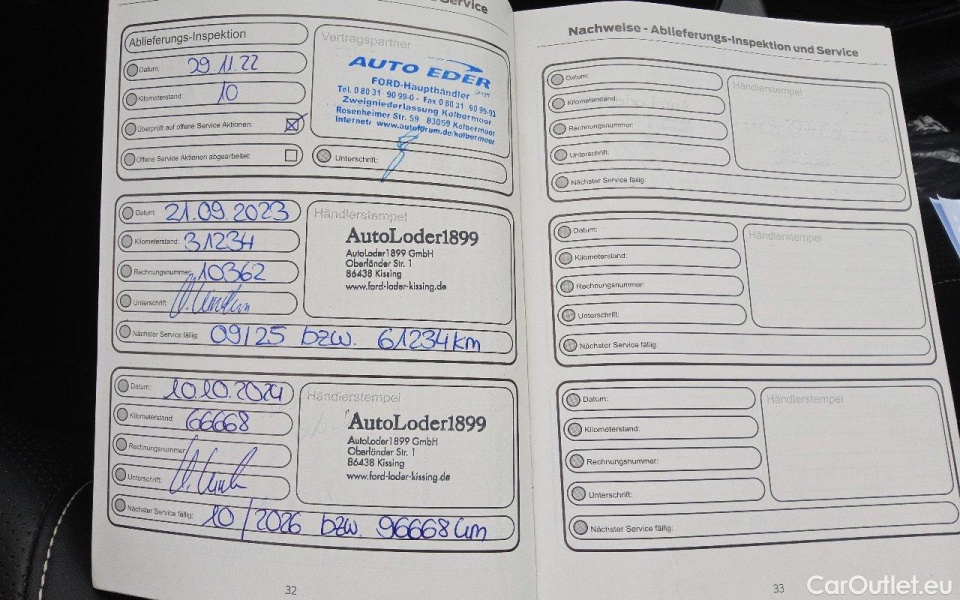 Service
Ablieferungs-Inspektion
Datum: 29.11.22
Kilometerstand: 10
Überprüft auf offene Service Aktionen:
Offene Service Aktionen abgearbeitet:
Vertragspartner
AUTO EDER
FORD-Haupthändler GmbH
Tel. 0 80 31 - 90 99-0 · Fax 0 80 31 - 90 99-93
Zweigniederlassung Kolbermoor
Rosenheimer Str. 59 83059 Kolbermoor
Internet: www.autoforum.de/kolbermoor
Unterschrift:
Datum: 21.09.2023
Kilometerstand: 31234
Rechnungsnummer: 10362
Unterschrift:
Händlerstempel
AutoLoder1899
AutoLoder1899 GmbH
Oberländer Str. 1
86438 Kissing
www.ford-loder-kissing.de
Nächster Service fällig: 09/25 bzw. 61234km
Datum: 10.10.2024
Kilometerstand: 66668
Rechnungsnummer:
Unterschrift:
Händlerstempel
AutoLoder1899
AutoLoder1899 GmbH
Oberländer Str. 1
86438 Kissing
www.ford-loder-kissing.de
Nächster Service fällig: 10/2026 bzw. 96668km
32
Nachweise - Ablieferungs-Inspektion und Service
Datum:
Kilometerstand:
Rechnungsnummer:
Unterschrift:
Händlerstempel
Nächster Service fällig:
Datum:
Kilometerstand:
Rechnungsnummer:
Unterschrift:
Händlerstempel
Nächster Service fällig:
Datum:
Kilometerstand:
Rechnungsnummer:
Unterschrift:
Händlerstempel
Nächster Service fällig:
33
CarOutlet.eu